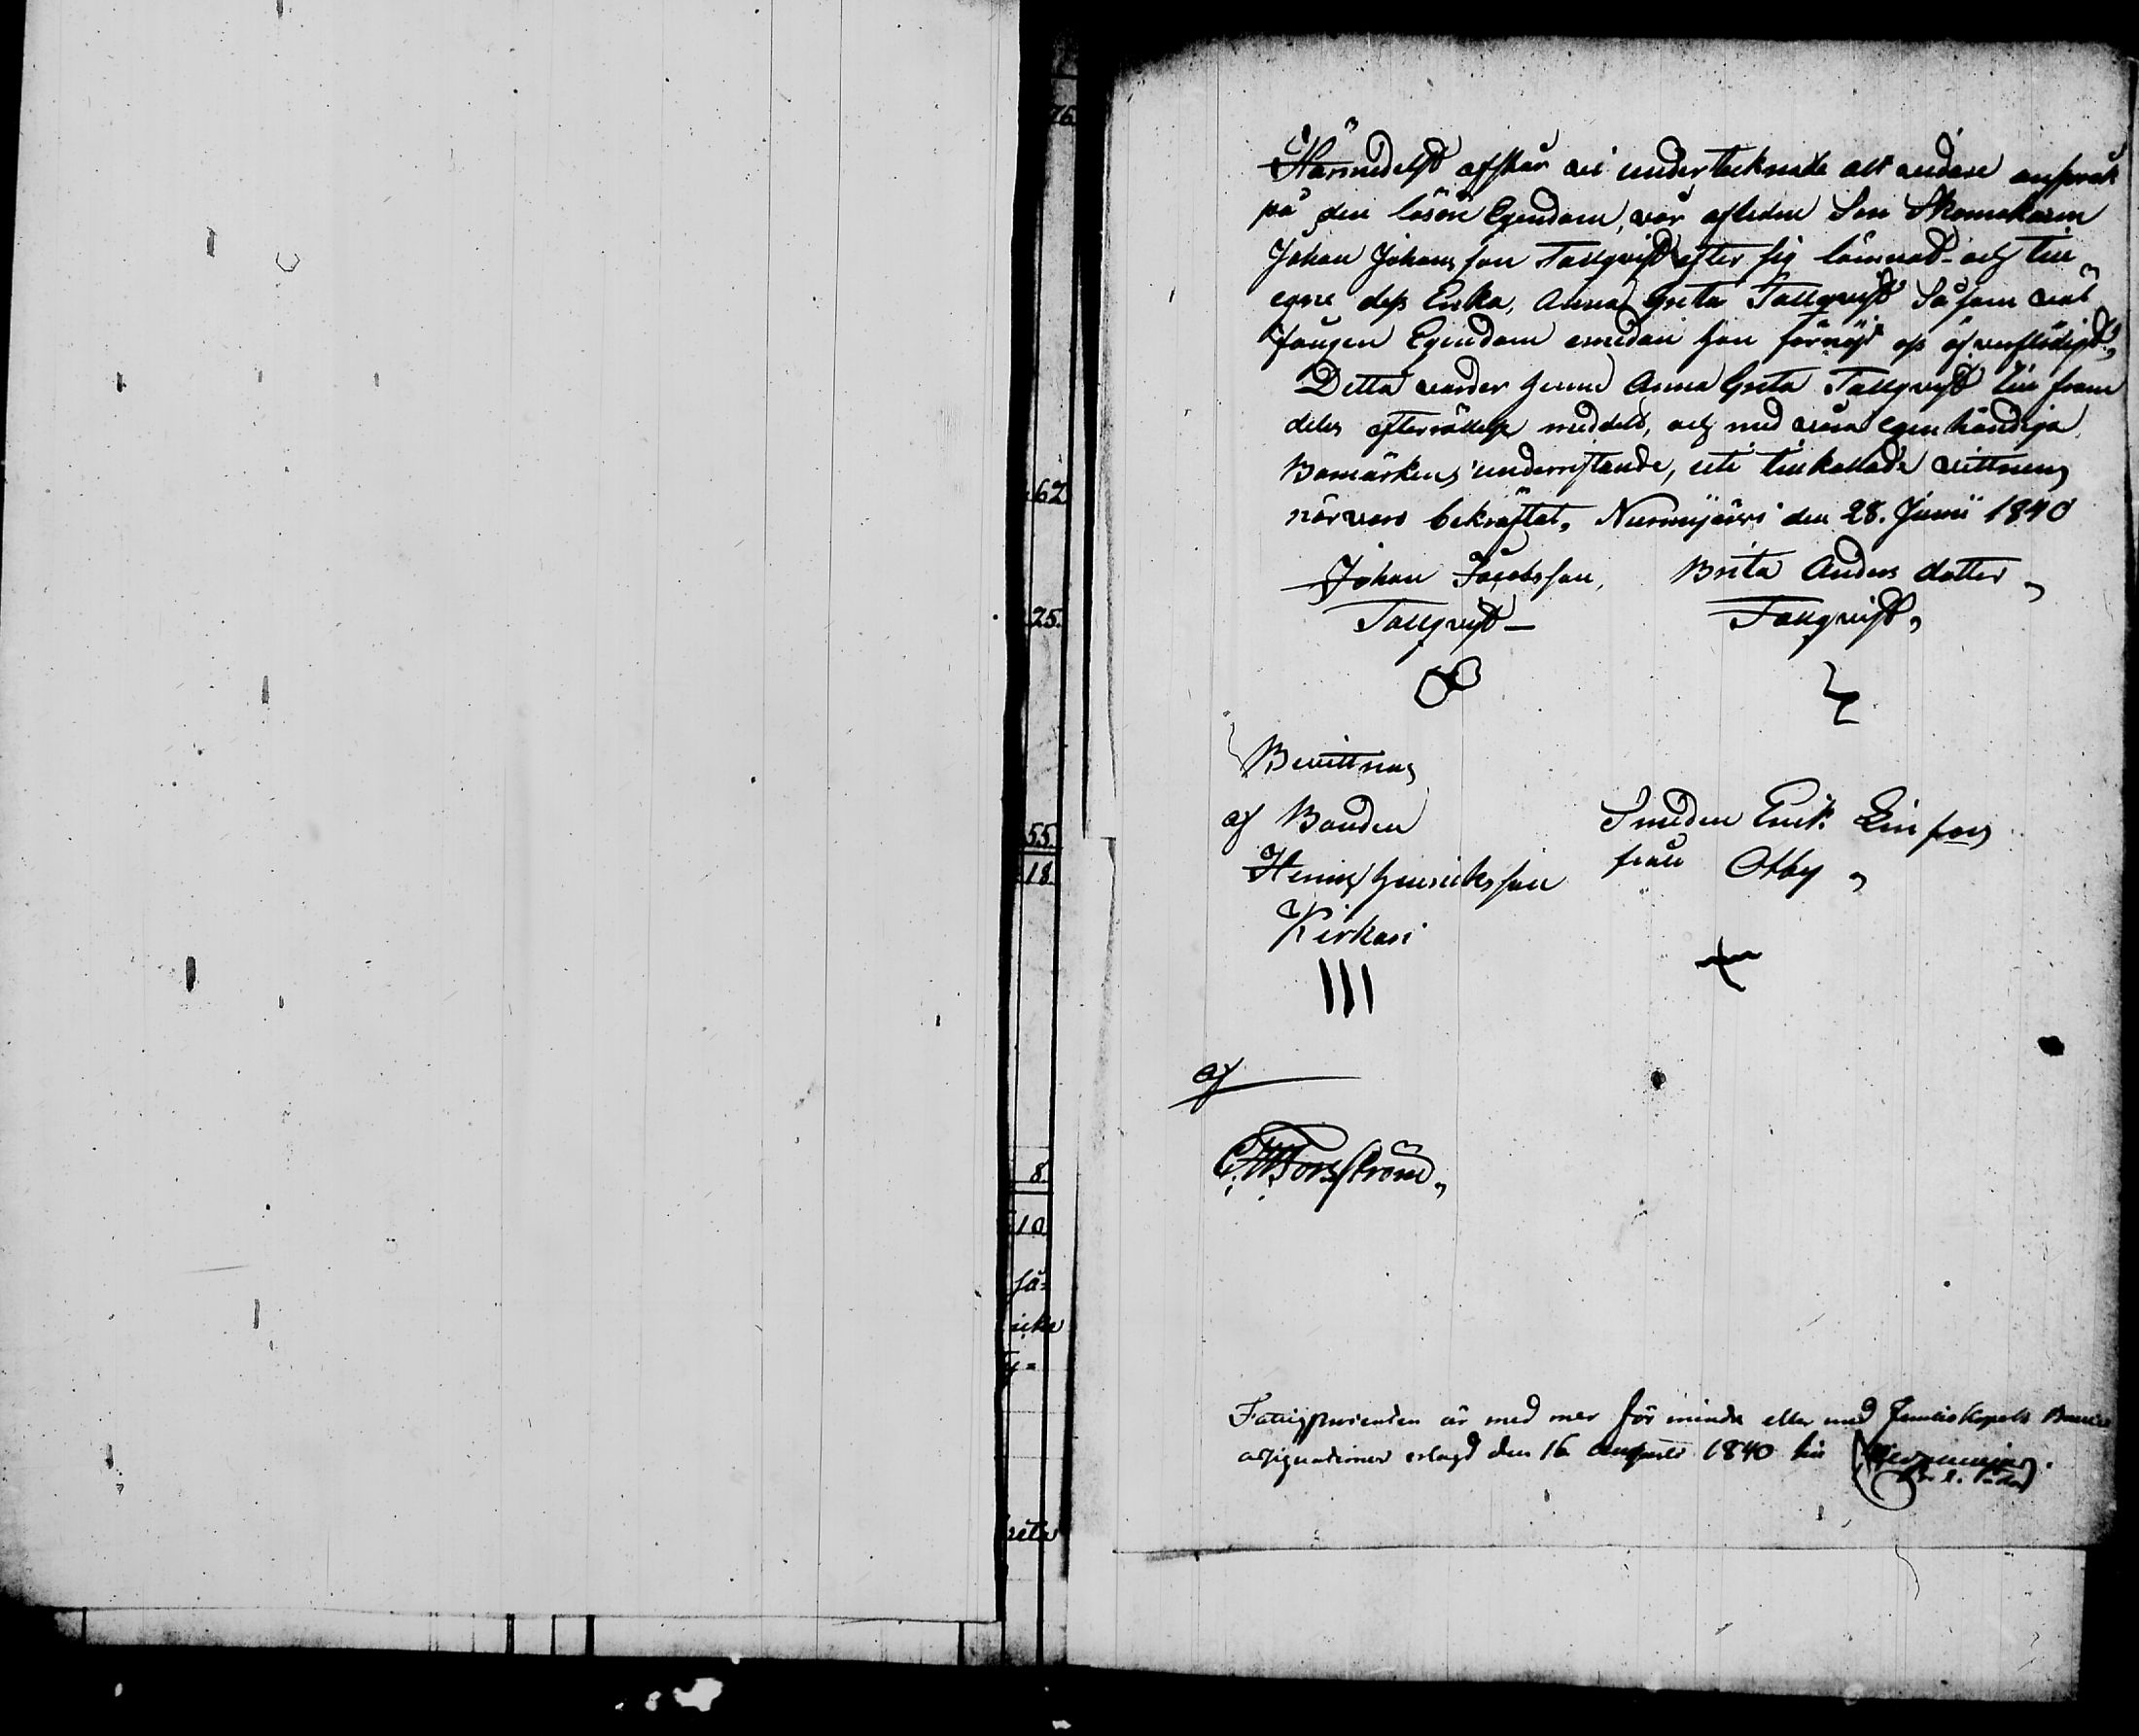 76
62
25.
55.
18
8.
10
så=
icka
reta
Härmedelst afstår vi undertecknade alt vidare anspråk
på den lösöre Egendom, vår afledne Son Skomakaren
Johan Johansson Tallqvist efter sig lämnad och till
egne dess Enka, Anna Greta Tallqvist Såsom väl
fången Egendom emedan hon förnöjt oss öfverflödigt,
Detta varder henne Anna Greta Tallqvist till fram
deles efterrättelse meddelt, och med våra egenhändiga
Bomärkens underristande, uti tillkallade vittnens
närvaro bekräftat, Nurmijärvi den 28. Junii 1840
Johan Jacobsson, Brita Anders dotter,
Tallqvist Tallqvist,
Bevittnas
af Bonden
Henric Henriksson
Kirkari
III
Smeden Erik Linfors
från Otby,
af
C. W. Forsström,
Fattigprocenten är med mer för mindre eller med
assignationer erlagd den 16 Augusti 1840 till